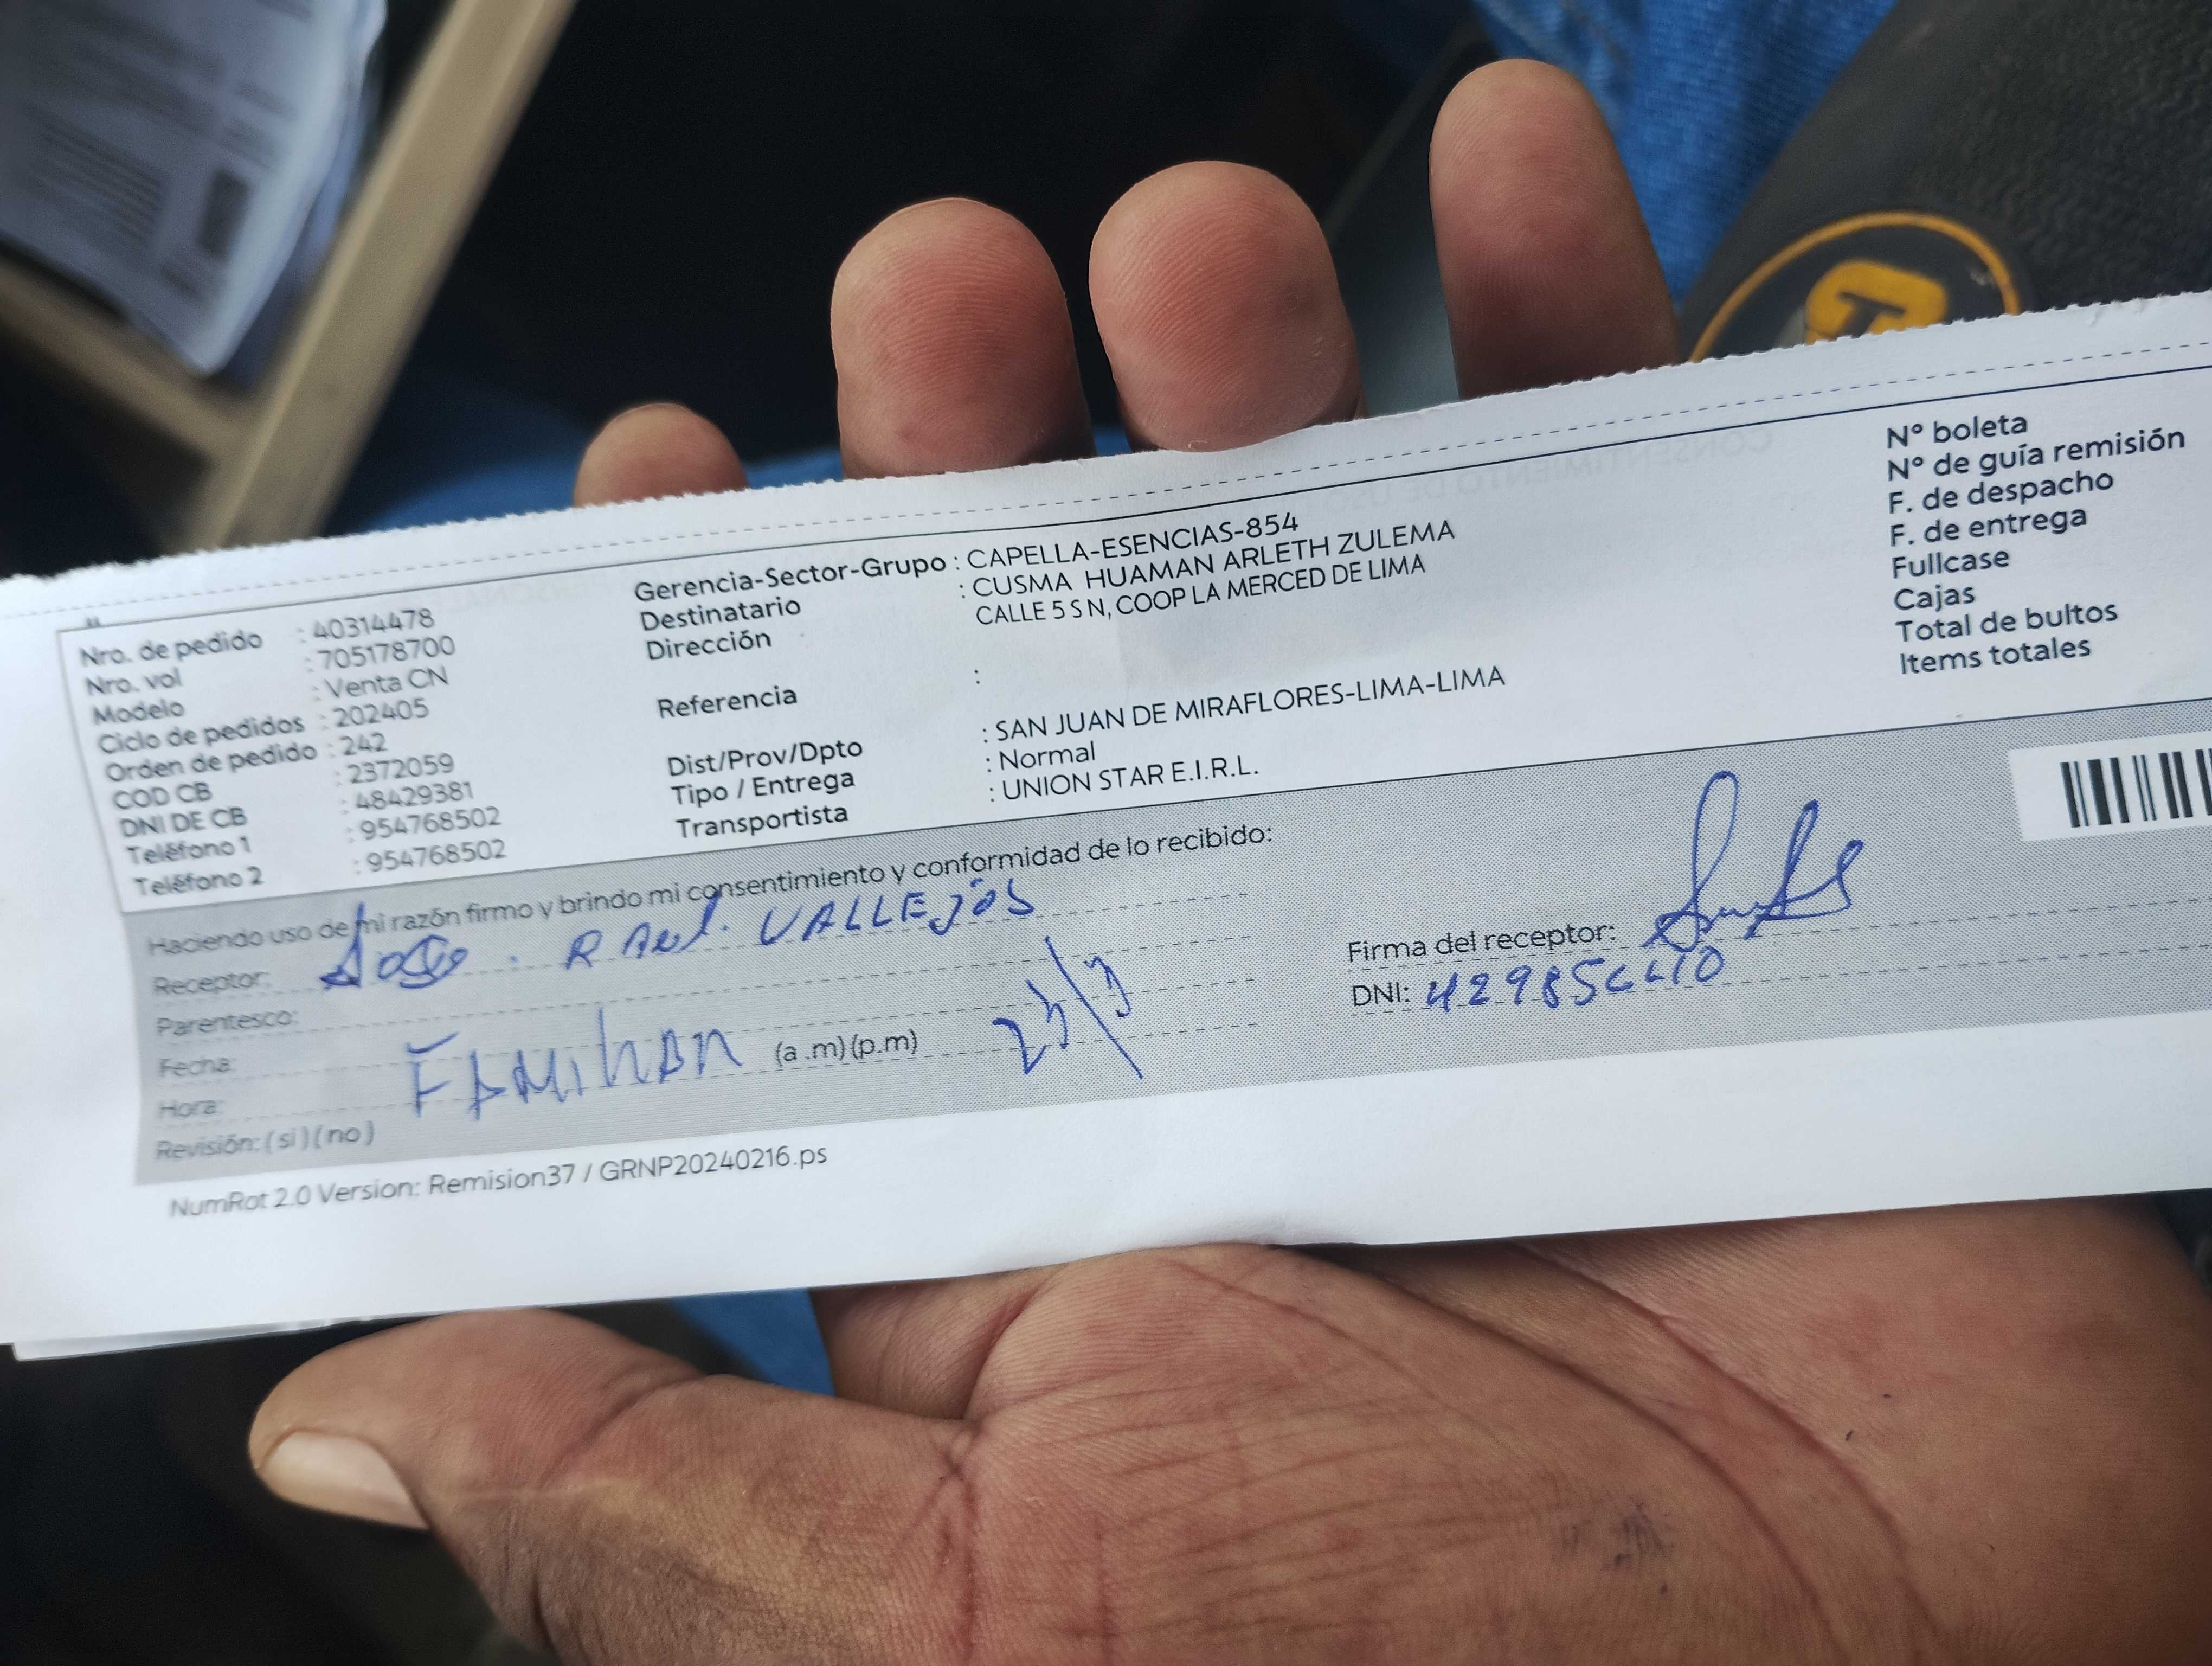 Nro. de pedido : 40314478
Nro. vol : 705178700
Modelo : Venta CN
Ciclo de pedidos : 202405
Orden de pedido : 242
COD CB : 2372059
DNI DE CB : 48429381
Teléfono 1 : 954768502
Teléfono 2 : 954768502
Gerencia-Sector-Grupo : CAPELLA-ESENCIAS-854
Destinatario : CUSMA HUAMAN ARLETH ZULEMA
Dirección CALLE 5 S N, COOP LA MERCED DE LIMA
:
Referencia
Dist/Prov/Dpto : SAN JUAN DE MIRAFLORES-LIMA-LIMA
Tipo / Entrega : Normal
Transportista : UNION STAR E.I.R.L.
N° boleta
N° de guía remisión
F. de despacho
F. de entrega
Fullcase
Cajas
Total de bultos
Items totales
Haciendo uso de mi razón firmo y brindo mi consentimiento y conformidad de lo recibido:
Receptor: VALLEJOS
Parentesco:
Fecha:
Hora: (a .m) (p.m)
Revisión: ( si ) ( no )
Firma del receptor:
DNI:
NumRot 2.0 Version: Remision37 / GRNP20240216.ps